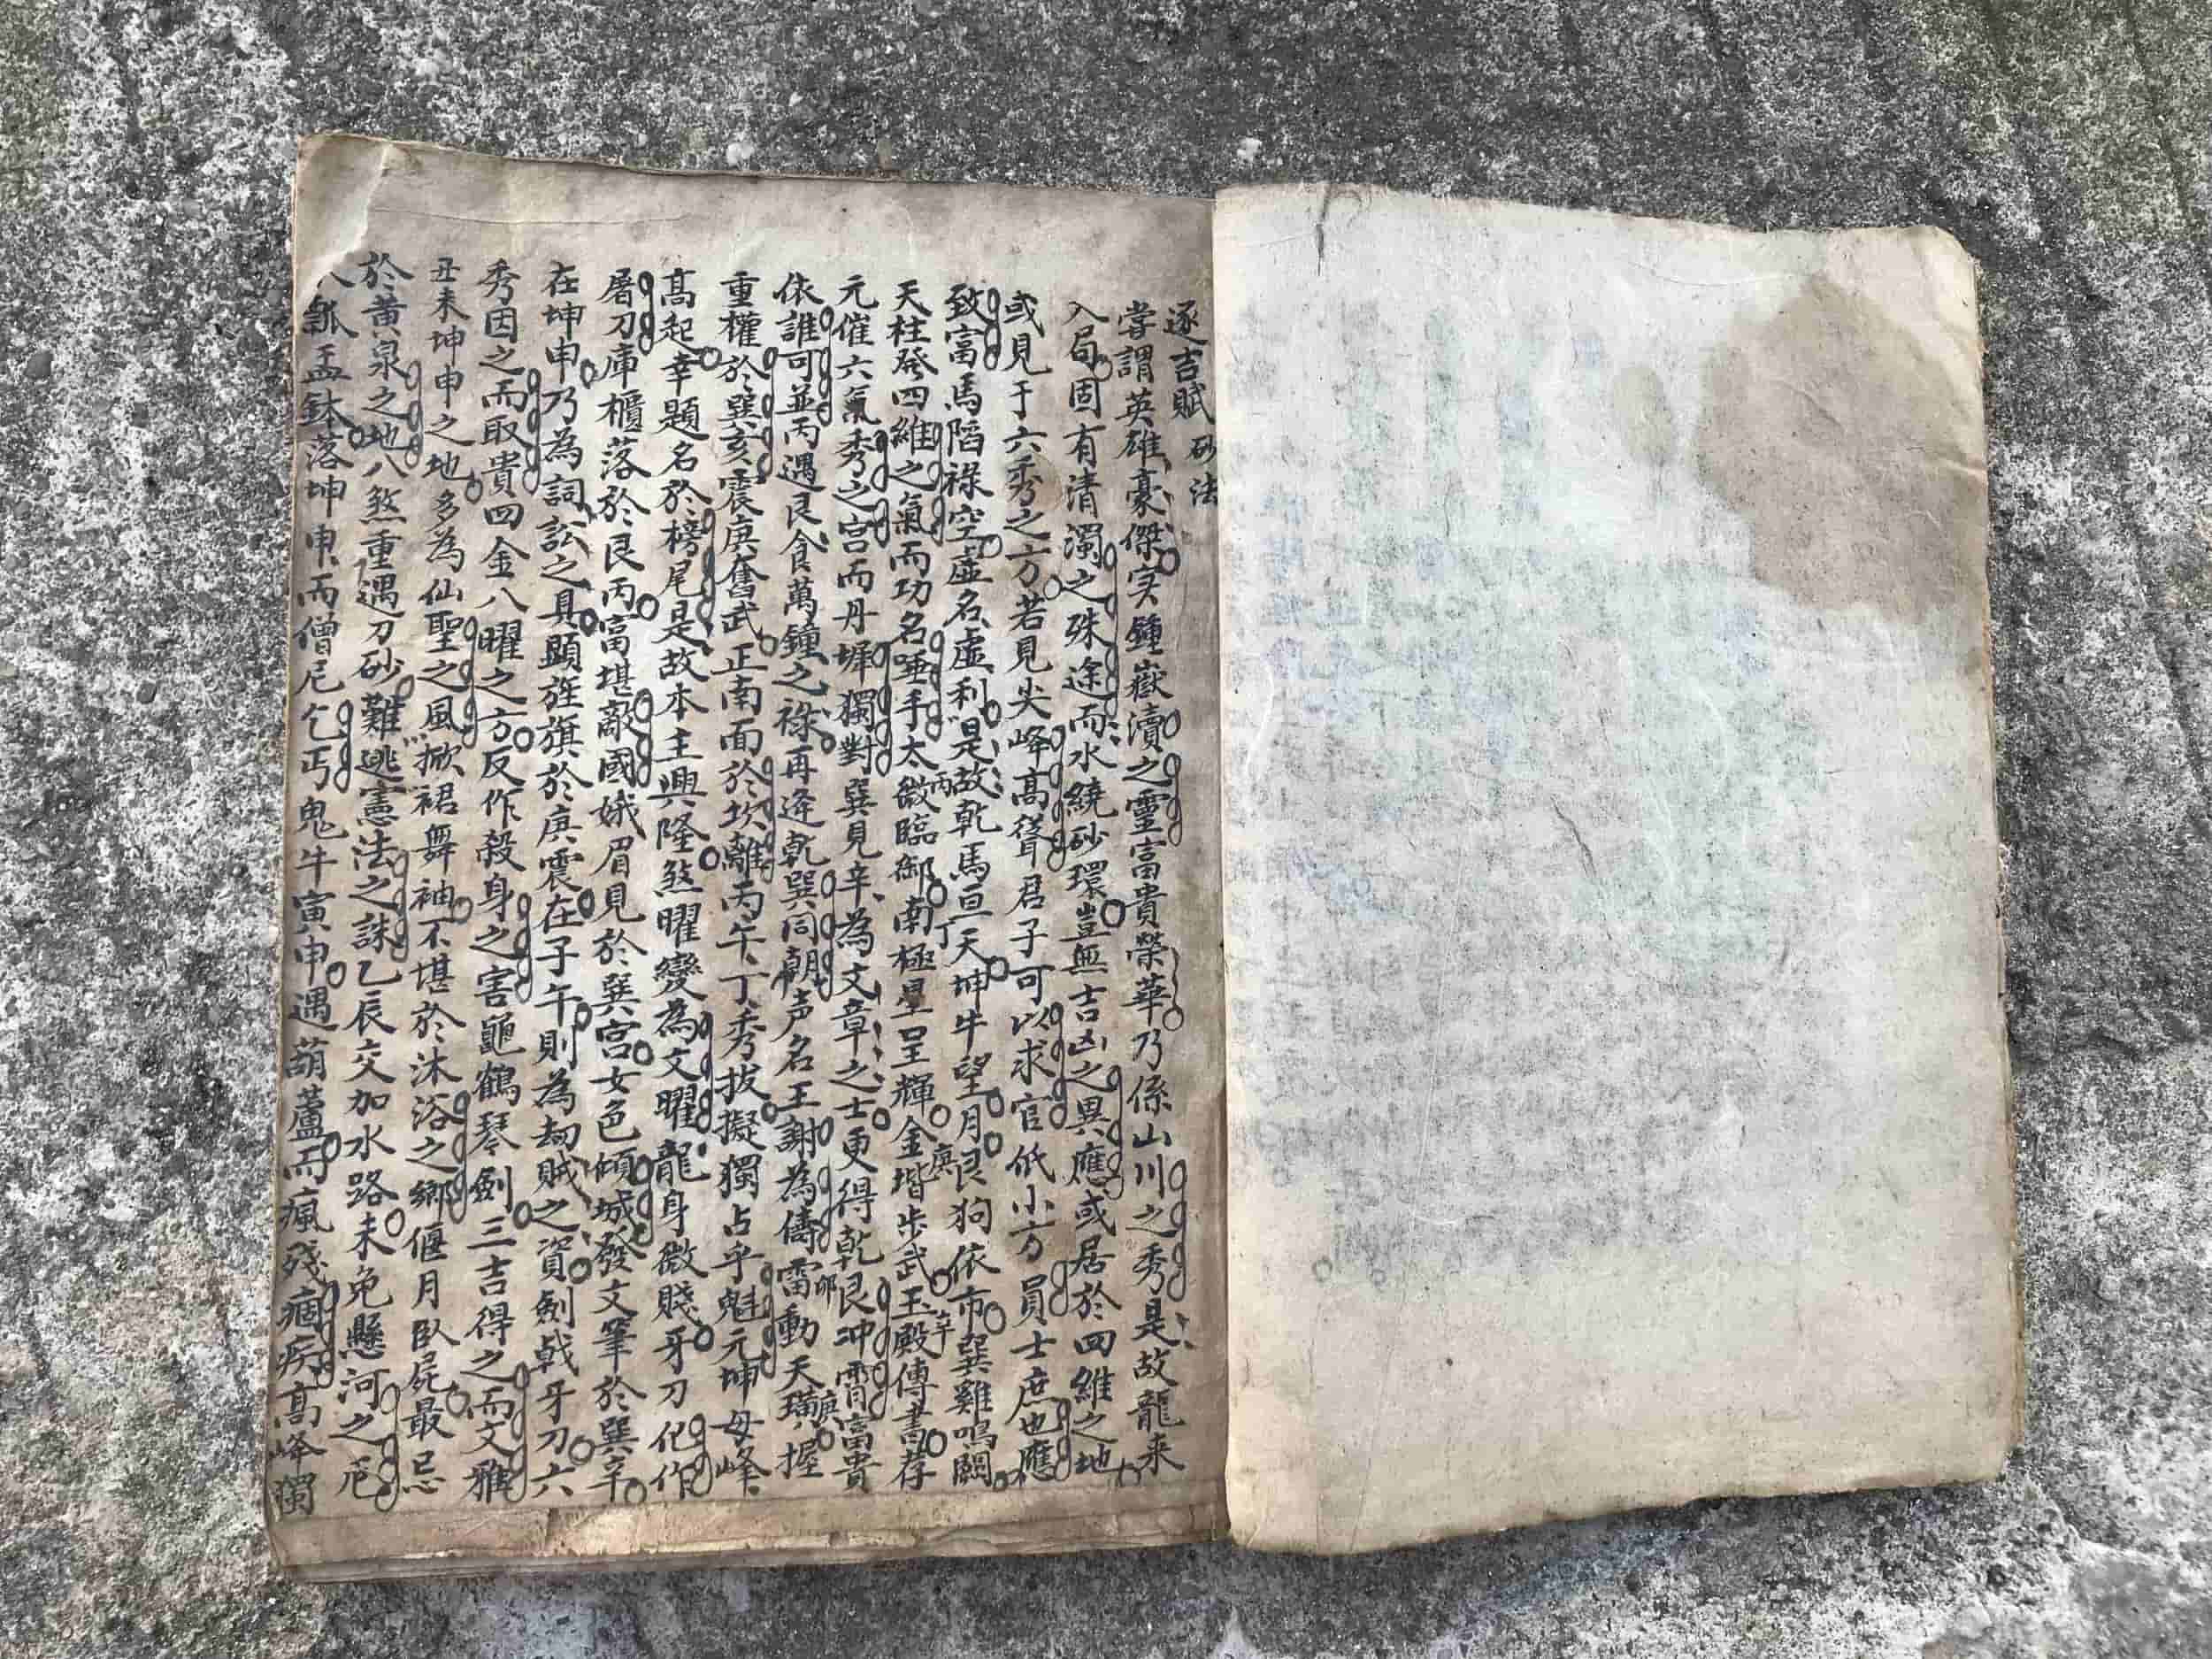 逐吉賦 砂法
嘗謂英雄豪傑实鐘嶽瀆之靈富貴榮華乃係山川之秀是故龍来
入局固有清濁之殊途而水繞砂環豈無吉凶之異應或居於四維之地
或見于六秀之方若見尖峰高聳君子可以求官低小方員士庶也應
致富馬陷祿空虛名虛利是故乾馬亘天坤牛望月艮狗依市巽雞鳴闕
天柱發四維之氣而功名唾手太微丙臨御南極丁星呈輝金堦庚步武玉殿辛傳書荐
元催六氣秀之宮而丹墀獨對巽見辛為文章之士更得乾艮冲霄富貴
依誰可並丙遇艮食萬鐘之祿再逢乾巽同朝声名王謝為儔雷卯動天璜庚握
重權於巽亥震庚奮武正南面於坎離丙午丁秀拔擬獨占乎魁元坤母峰
高起幸題名於榜尾是故本主興隆煞曜變為文曜龍身微賤牙刀化作
屠刀庫櫃落於艮丙富堪敵國娥眉見於巽宮女色傾城發文筆於巽辛
在坤申乃為詞訟之具顯旌旗於庚震在子午則為刼賊之資劍戟牙刀六
秀因之而取貴四金八曜之方反作殺身之害龜鶴琴劍三吉得之而文雅
丑未坤申之地多為仙聖之風掀裙舞袖不堪於沐浴之鄉偃月臥屍最忌
於黃泉之地八煞重遇刀砂難逃憲法之誅乙辰交加水路未免懸河之厄
瓢盂鉢落坤申而僧尼乞丐鬼牛寅申遇葫蘆而瘋殘痼疾高峰獨